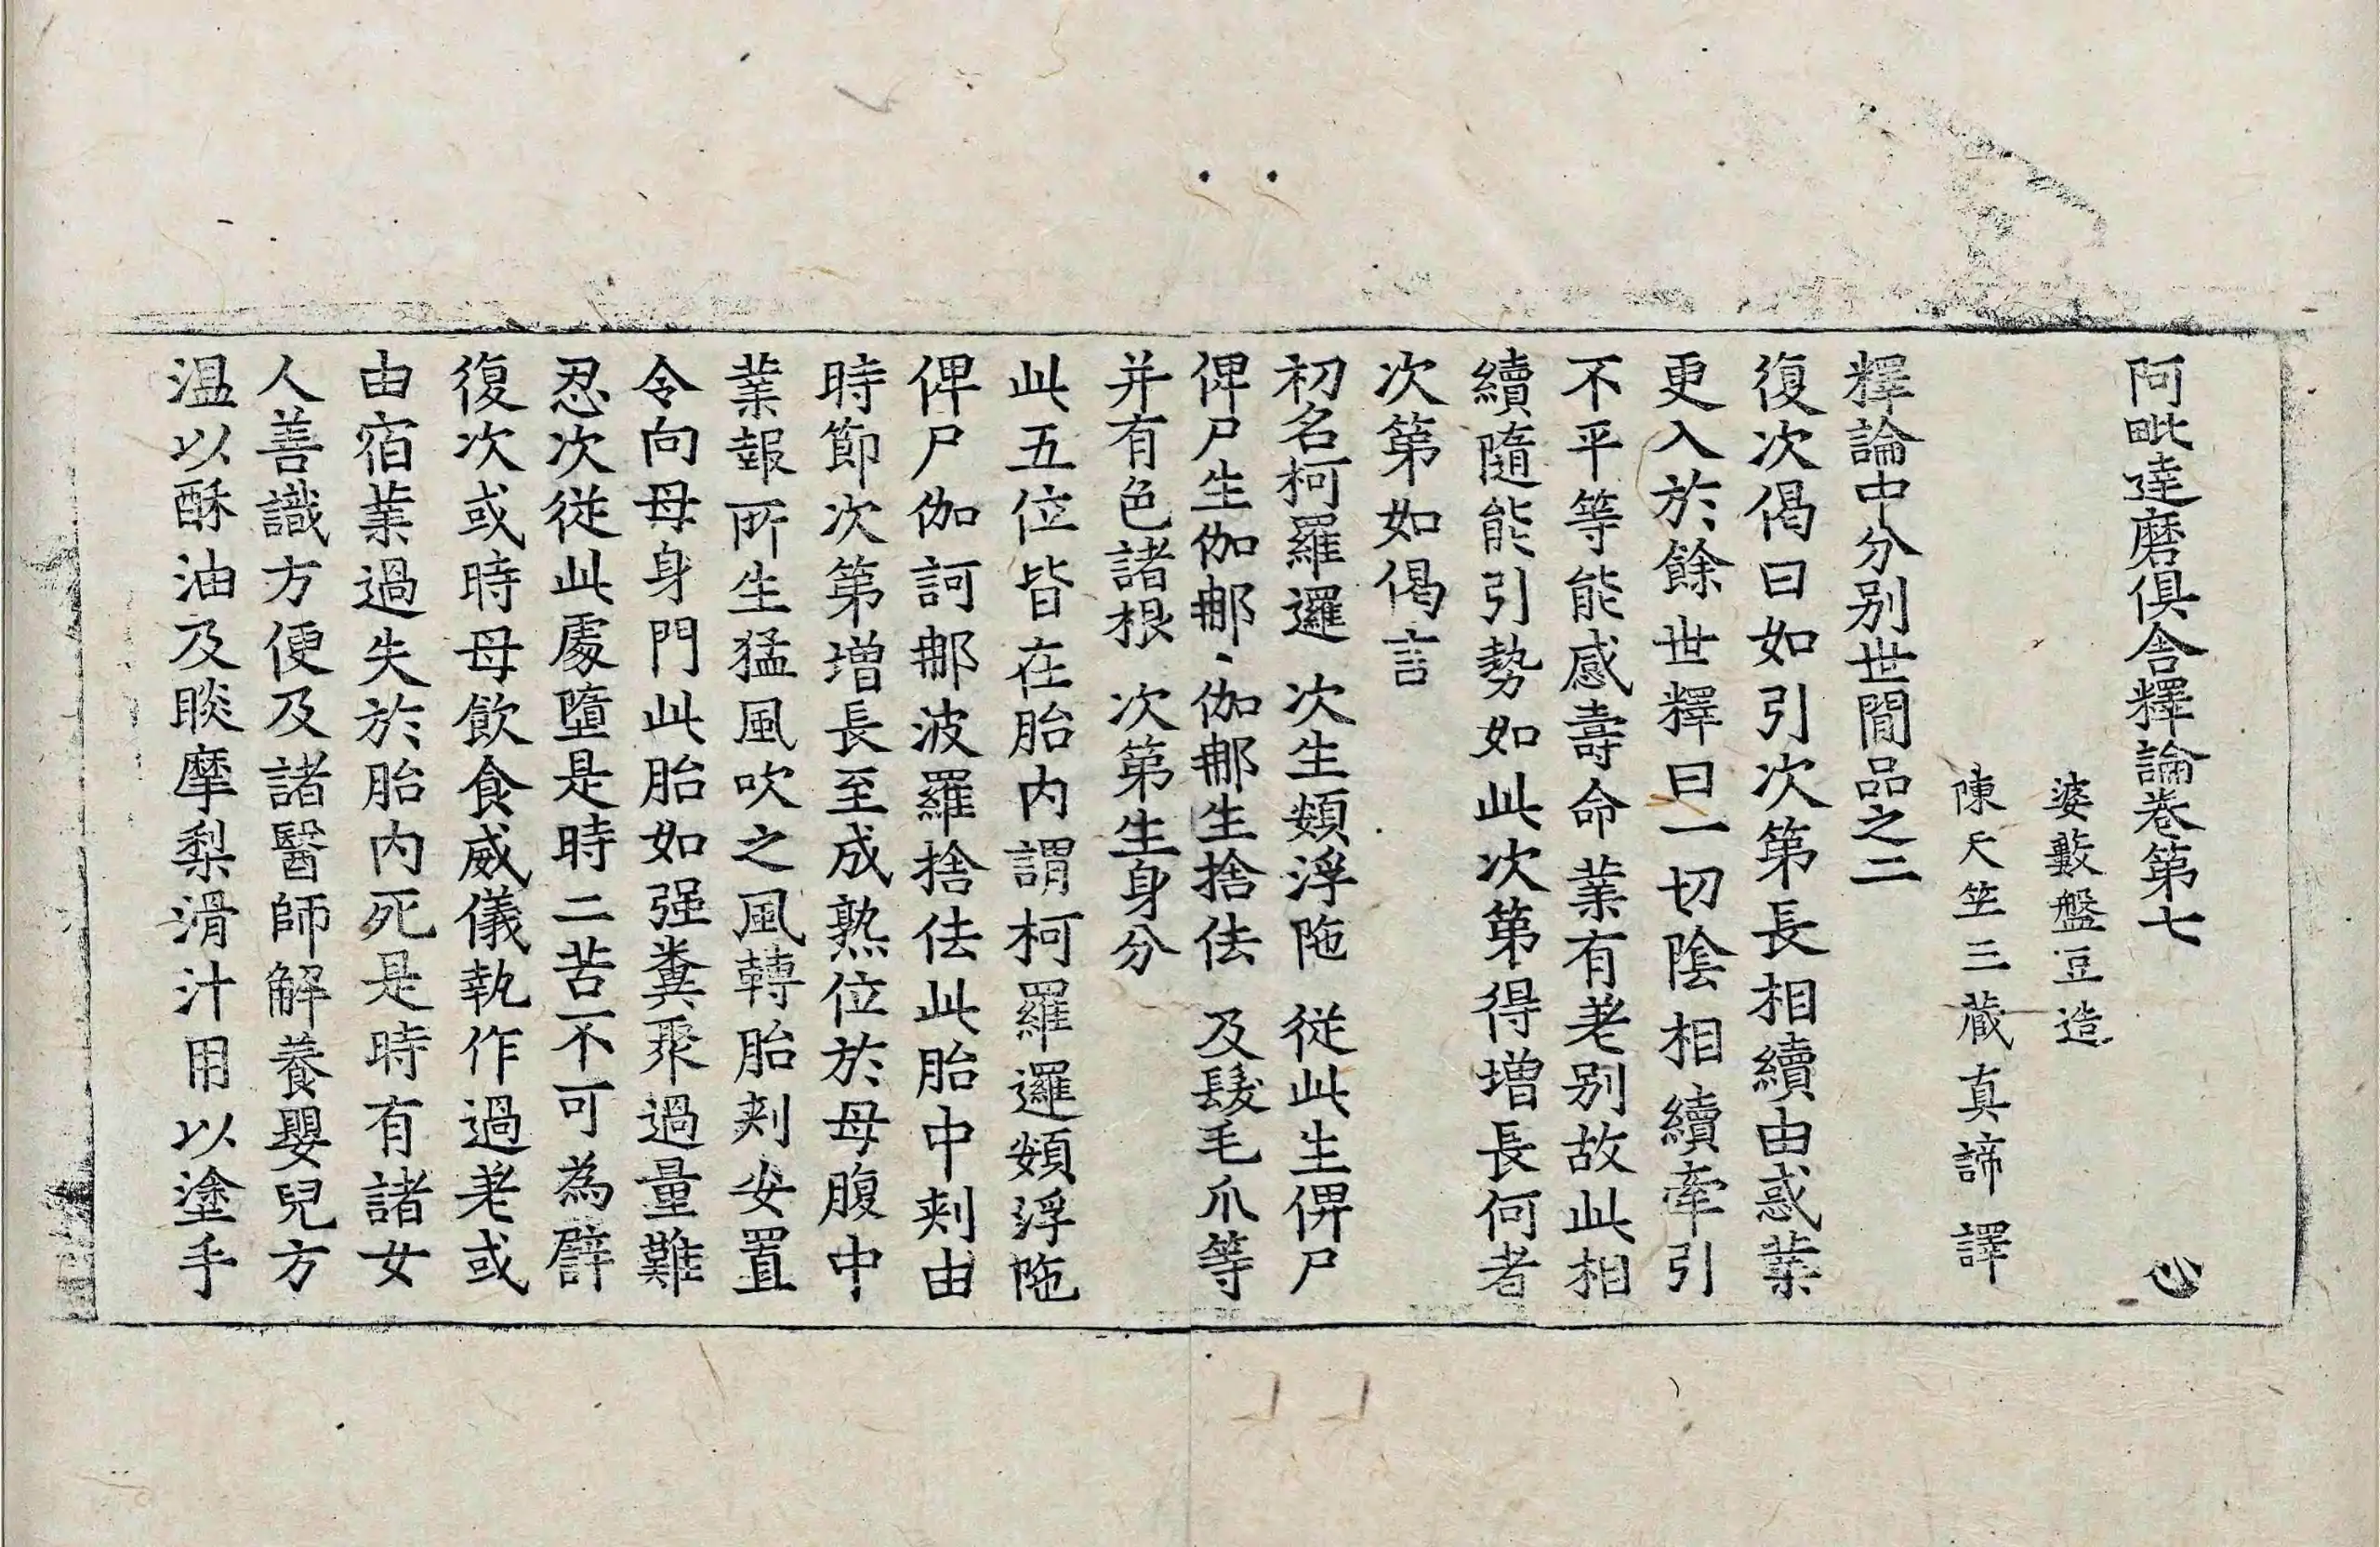 阿毗達磨俱舍釋論卷第七 心
婆藪盤豆造
陳天竺三藏真諦譯
釋論中分別世間品之二
復次偈曰如引次第長相續由惑業
更入於餘世釋曰一切陰相續牽引
不平等能感壽命業有差別故此相
續隨能引勢如此次第得增長何者
次第如偈言
初名柯羅邏 次生頞浮陁 從此生俾尸
俾尸生伽䣝 伽䣝生捨佉 及髮毛爪等
并有色諸根 次第生身分
此五位皆在胎內謂柯羅邏頞浮陁
俾尸伽訶䣝波羅捨佉此胎中刾由
時節次第增長至成熟位於母腹中
業報所生猛風吹之風轉胎刾安置
令向母身門此胎如强糞聚過量難
忍次從此處墮是時二苦不可為譬
復次或時母飲食威儀執作過差或
由宿業過失於胎內死是時有諸女
人善識方便及諸醫師解養嬰兒方
溫以酥油及睒摩梨滑汁用以塗手